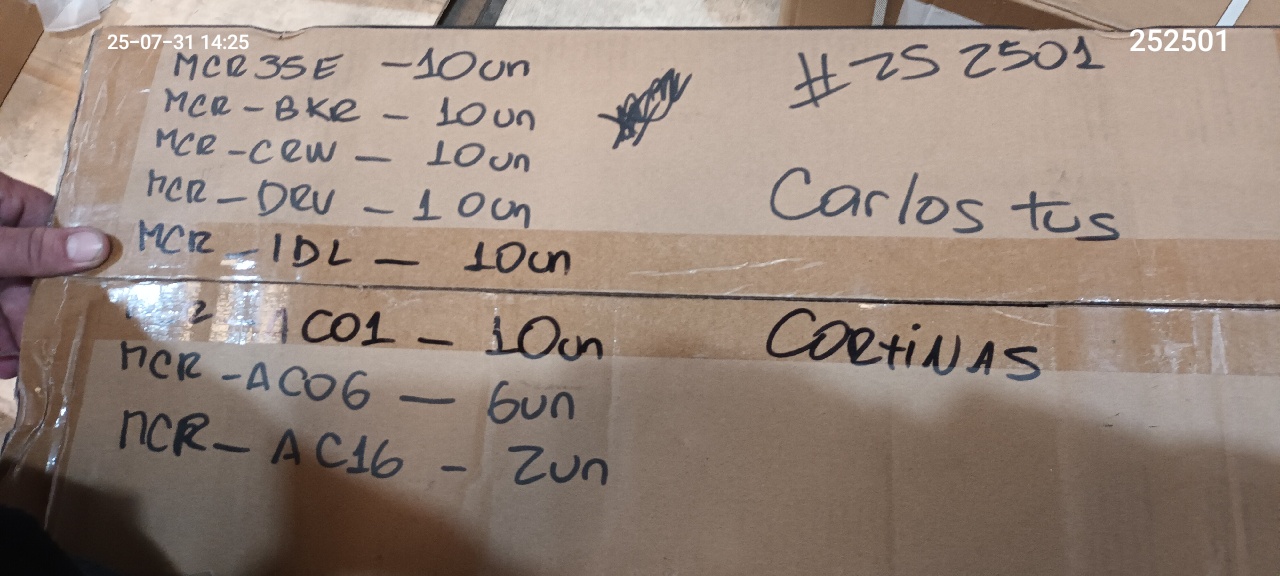 25-07-31 14:25
252501
MCR35E -10un
#252501
MCR-BKR - 10un
MCR-CRW - 10un
MCR-DRV - 10un
Carlos tus
MCR-IDL - 10un
CO1 - 10un
CORtiNAS
MCR-AC06 - 6un
MCR-AC16 - 2un